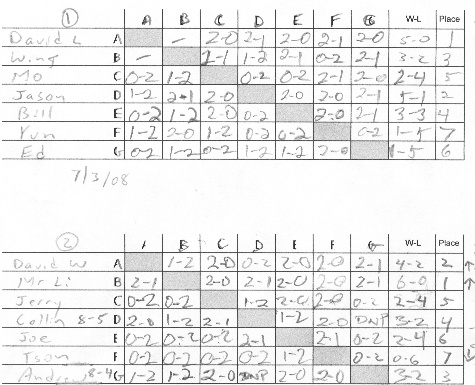 1 A B C D E F G W-L Place
David L A — 2-0 2-1 2-0 2-1 2-0 5-0 1
Wing B — 2-1 1-2 2-1 0-2 2-1 3-2 3
Mo C 0-2 1-2 0-2 0-2 2-1 2-0 2-4 5
Jason D 1-2 2-1 2-0 2-0 2-0 2-1 5-1 2
Bill E 0-2 1-2 2-0 0-2 2-0 2-1 3-3 4
Yun F 1-2 2-0 1-2 0-2 0-2 0-2 1-5 7
Ed G 0-2 1-2 0-2 1-2 1-2 2-0 1-5 6
7/3/08
2 A B C D E F G W-L Place
David W A 1-2 2-0 0-2 2-0 2-0 2-1 4-2 2 ↑
Mr Li B 2-1 2-0 2-1 2-0 2-0 2-1 6-0 1 ↑
Jerry C 0-2 0-2 1-2 2-0 2-0 0-2 2-4 5
Collin 8-5 D 2-0 1-2 2-1 1-2 2-0 DNP 3-2 4
Joe E 0-2 0-2 0-2 2-1 2-1 0-2 2-4 6
Tson F 0-2 0-2 0-2 0-2 1-2 0-2 0-6 7
8-4 G 1-2 1-2 2-0 DNP 2-0 2-0 3-2 3